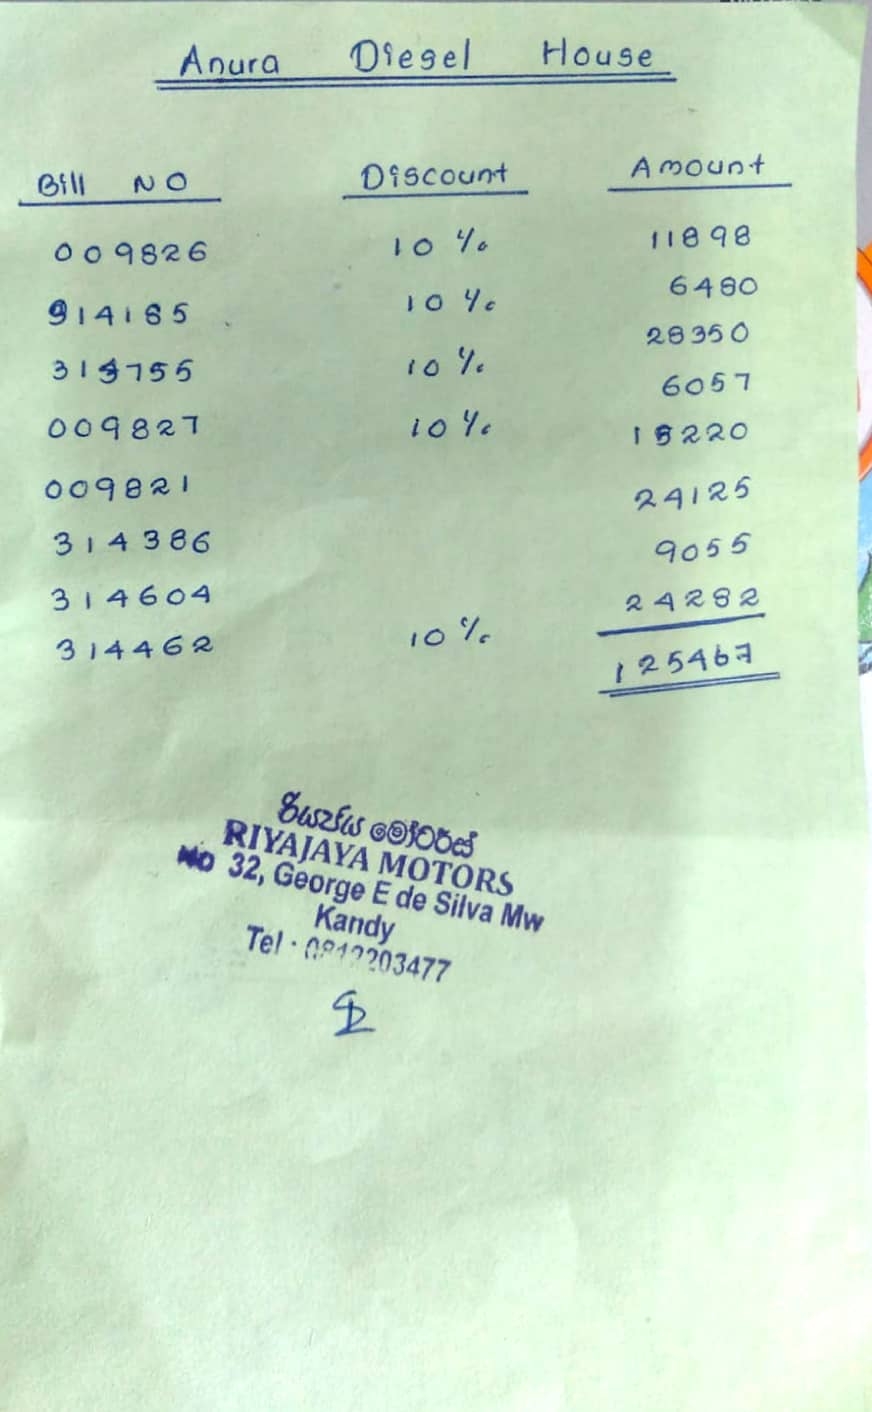 Anura Diesel House
Bill NO Discount Amount
009826 10% 11898
914185 10% 6480
319755 10% 28350
009827 10% 6057
009821 15220
314386 24125
314604 9055
314462 10% 24282
125467
රියජය මෝටර්ස්
RIYAJAYA MOTORS
NO 32, George E de Silva Mw
Kandy
Tel : 0812203477